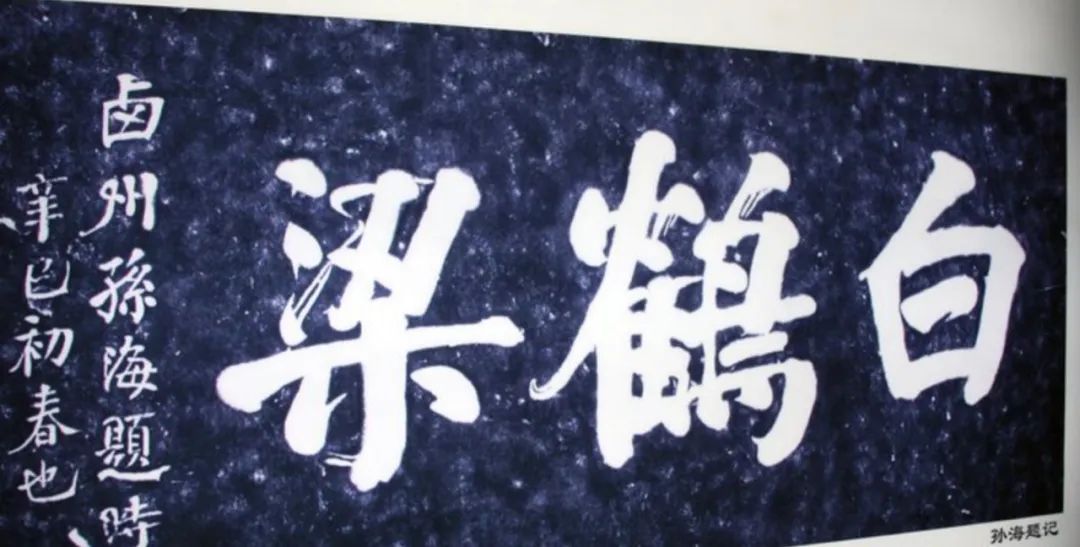 白鶴梁
卤州孫海題時
辛巳初春也
孙海题记